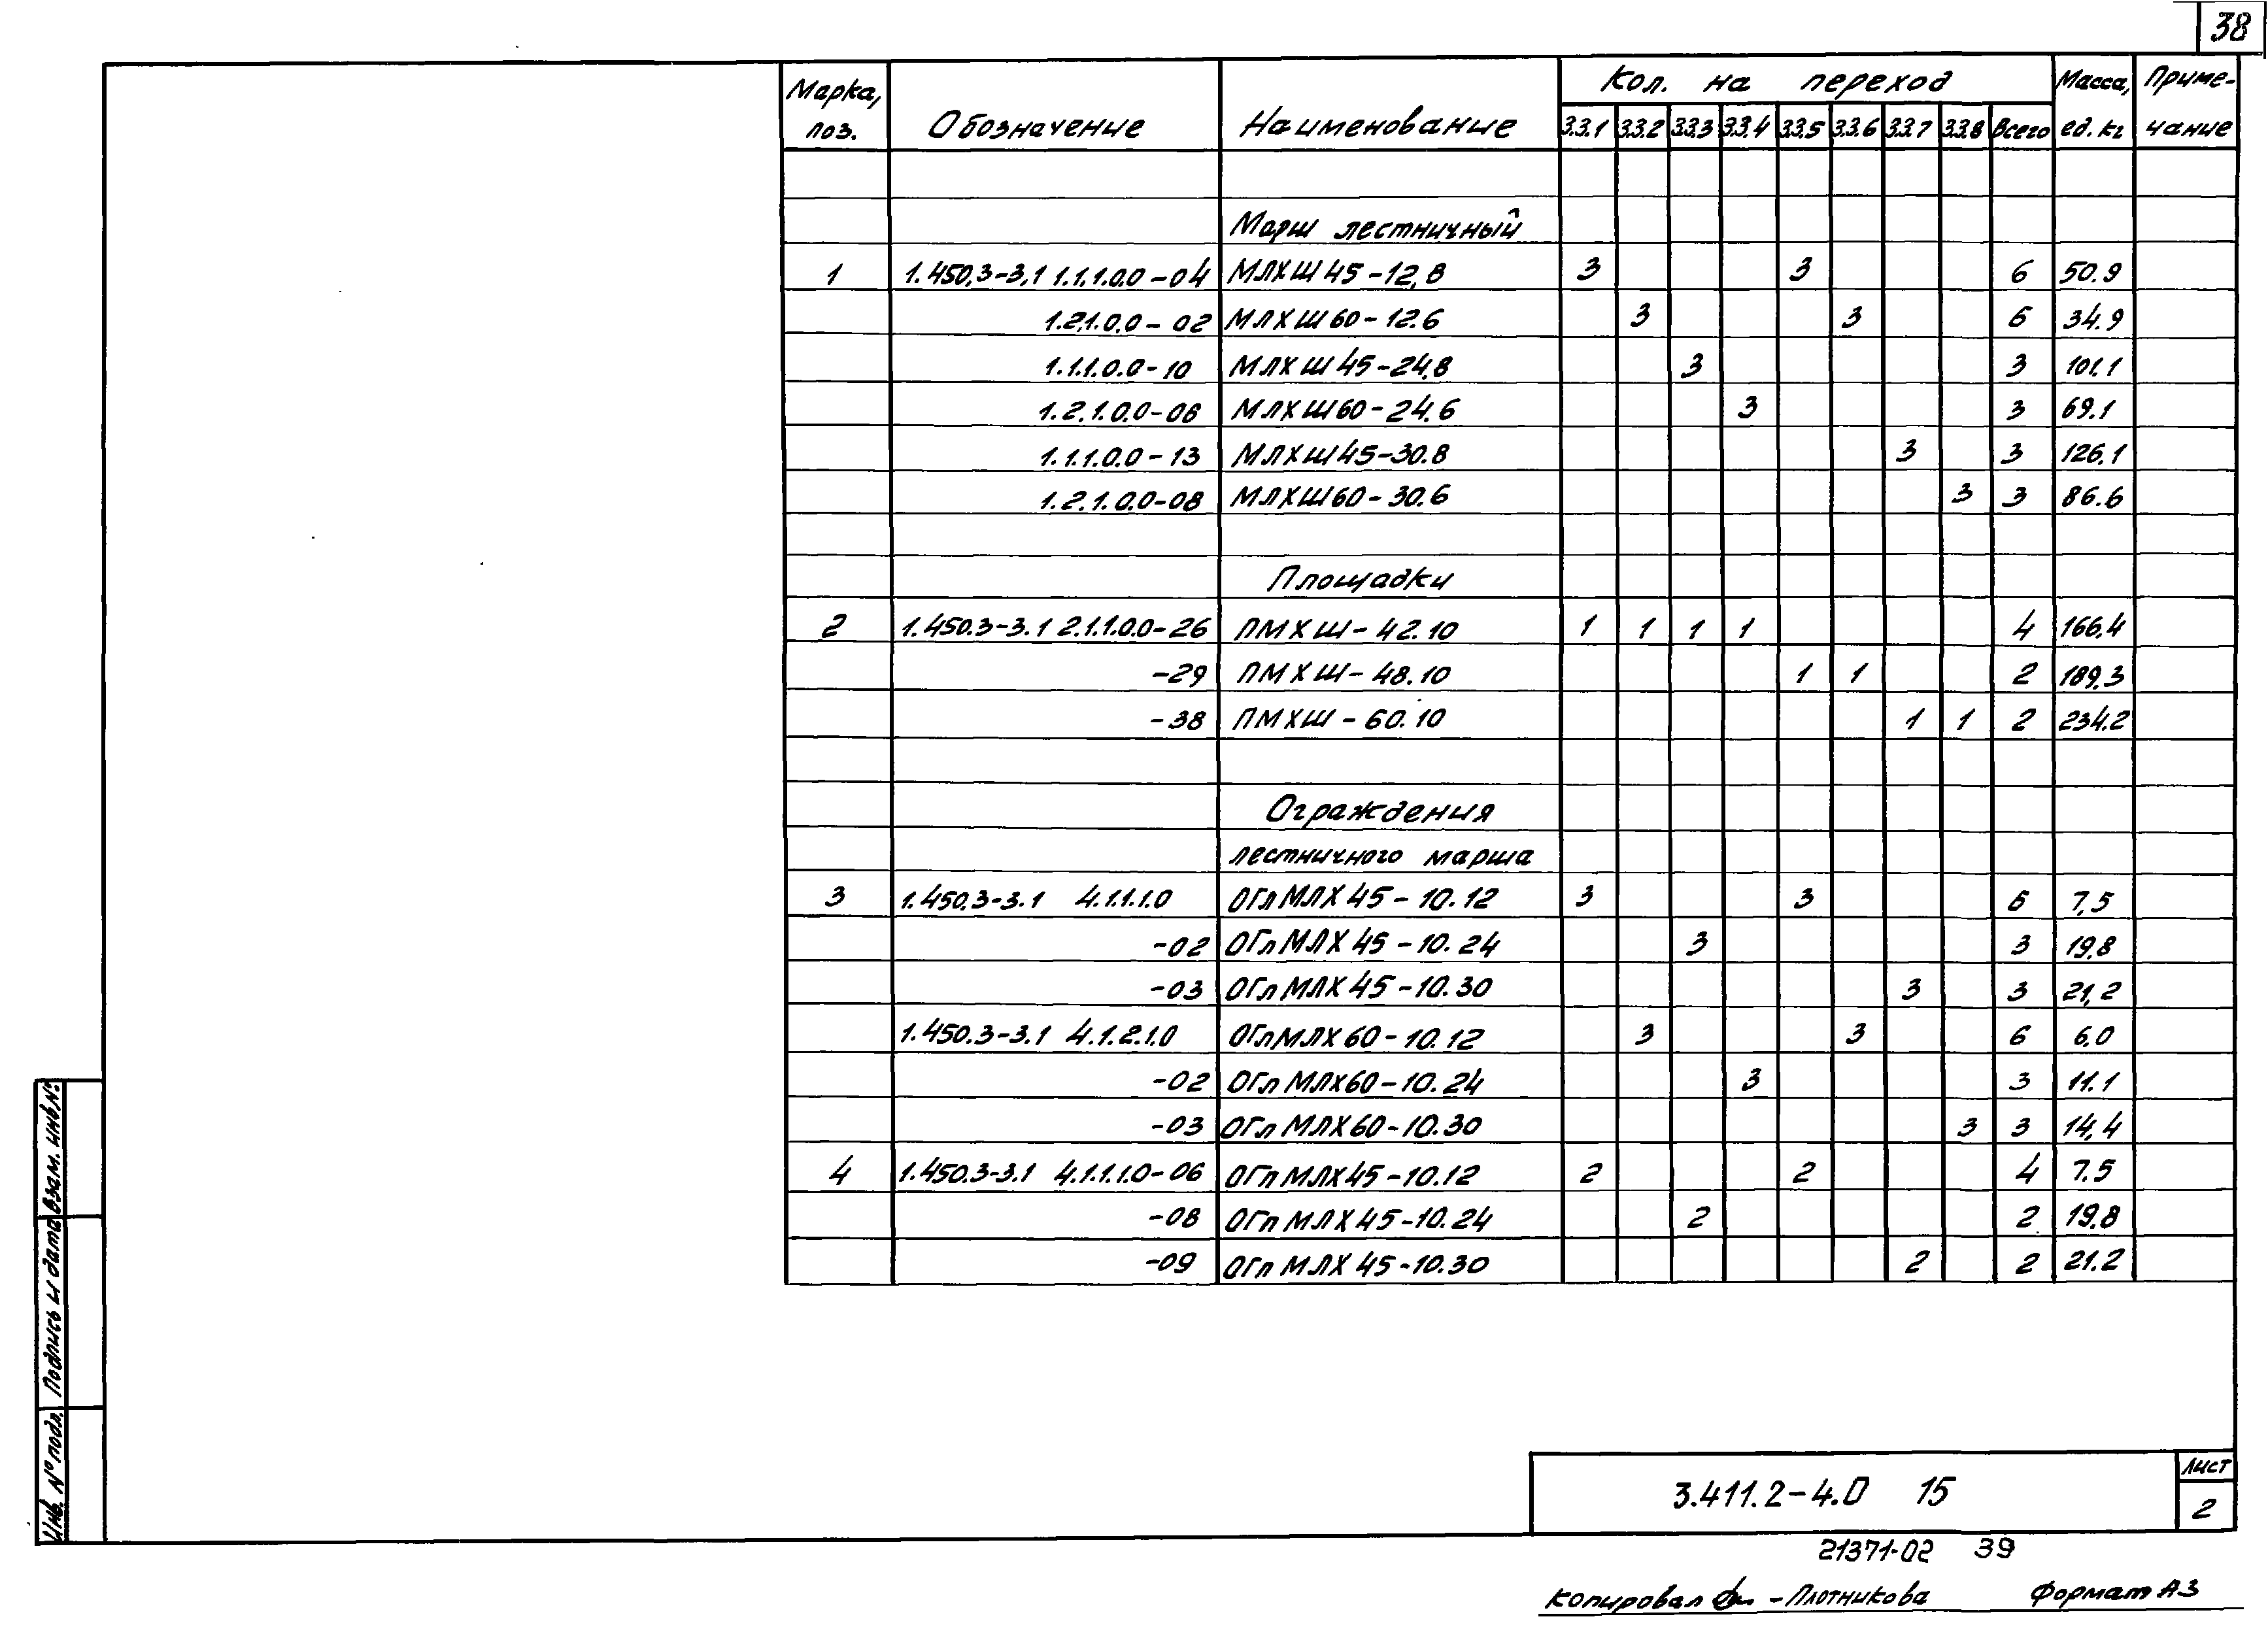 38
Марка, поз. Обозначение Наименование Кол. на переход Масса, ед. кг Примечание
3.3.1 3.3.2 3.3.3 3.3.4 3.3.5 3.3.6 3.3.7 3.3.8 Всего
Марш лестничный
1 1.450.3-3.1 1.1.1.0.0-04 МЛХШ 45-12.8 3 3 6 50.9
1.2.1.0.0-02 МЛХШ 60-12.6 3 3 6 34.9
1.1.1.0.0-10 МЛХШ 45-24.8 3 3 101.1
1.2.1.0.0-06 МЛХШ 60-24.6 3 3 69.1
1.1.1.0.0-13 МЛХШ 45-30.8 3 3 126.1
1.2.1.0.0-08 МЛХШ 60-30.6 3 3 86.6
Площадки
2 1.450.3-3.1 2.1.1.0.0-26 ПМХШ-42.10 1 1 1 1 4 166.4
-29 ПМХШ-48.10 1 1 2 189.3
-38 ПМХШ-60.10 1 1 2 234.2
Ограждения
лестничного марша
3 1.450.3-3.1 4.1.1.1.0 ОГл МЛХ 45-10.12 3 3 6 7,5
-02 ОГл МЛХ 45-10.24 3 3 19,8
-03 ОГл МЛХ 45-10.30 3 3 21,2
1.450.3-3.1 4.1.2.1.0 ОГл МЛХ 60-10.12 3 3 6 6,0
-02 ОГл МЛХ 60-10.24 3 3 11.1
-03 ОГл МЛХ 60-10.30 3 3 14,4
4 1.450.3-3.1 4.1.1.1.0-06 ОГп МЛХ 45-10.12 2 2 4 7.5
-08 ОГп МЛХ 45-10.24 2 2 19.8
-09 ОГп МЛХ 45-10.30 2 2 21.2
Взам. инв. №
Подпись и дата
Инв. № подл.
3.411.2-4.0 15
Лист
2
21371-02 39
Копировал -Плотникова Формат А3